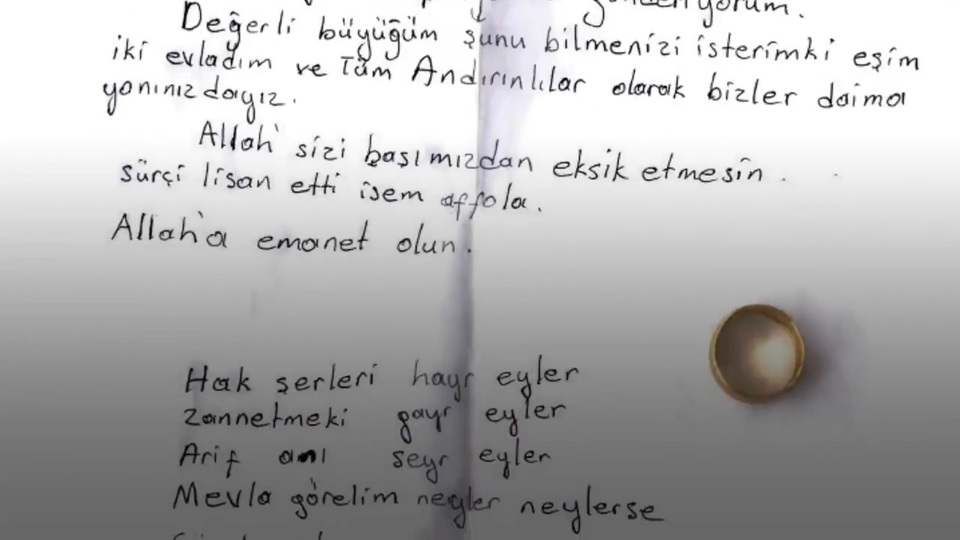 gönderiyorum.
Değerli büyüğüm şunu bilmenizi isterimki eşim
iki evladım ve Tüm Andırınlılar olarak bizler daima
yanınızdayız.
Allah' sizi başımızdan eksik etmesin.
sürçi lisan etti isem affola.
Allah'a emanet olun.
Hak şerleri hayr eyler
Zannetmeki gayr eyler
Arif anı seyr eyler
Mevla görelim neyler neylerse